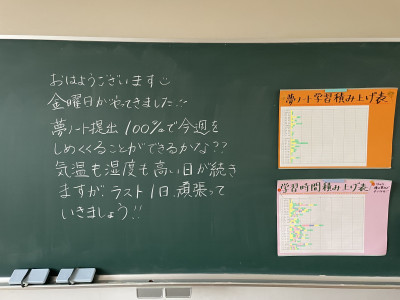 おはようございます
金曜日がやってきました!!
夢ノート提出100%で今週を
しめくくることができるかな??
気温も湿度も高い日が続き
ますが、ラスト1日、頑張って
いきましょう!!
夢ノート学習積み上げ表
学習時間積み上げ表